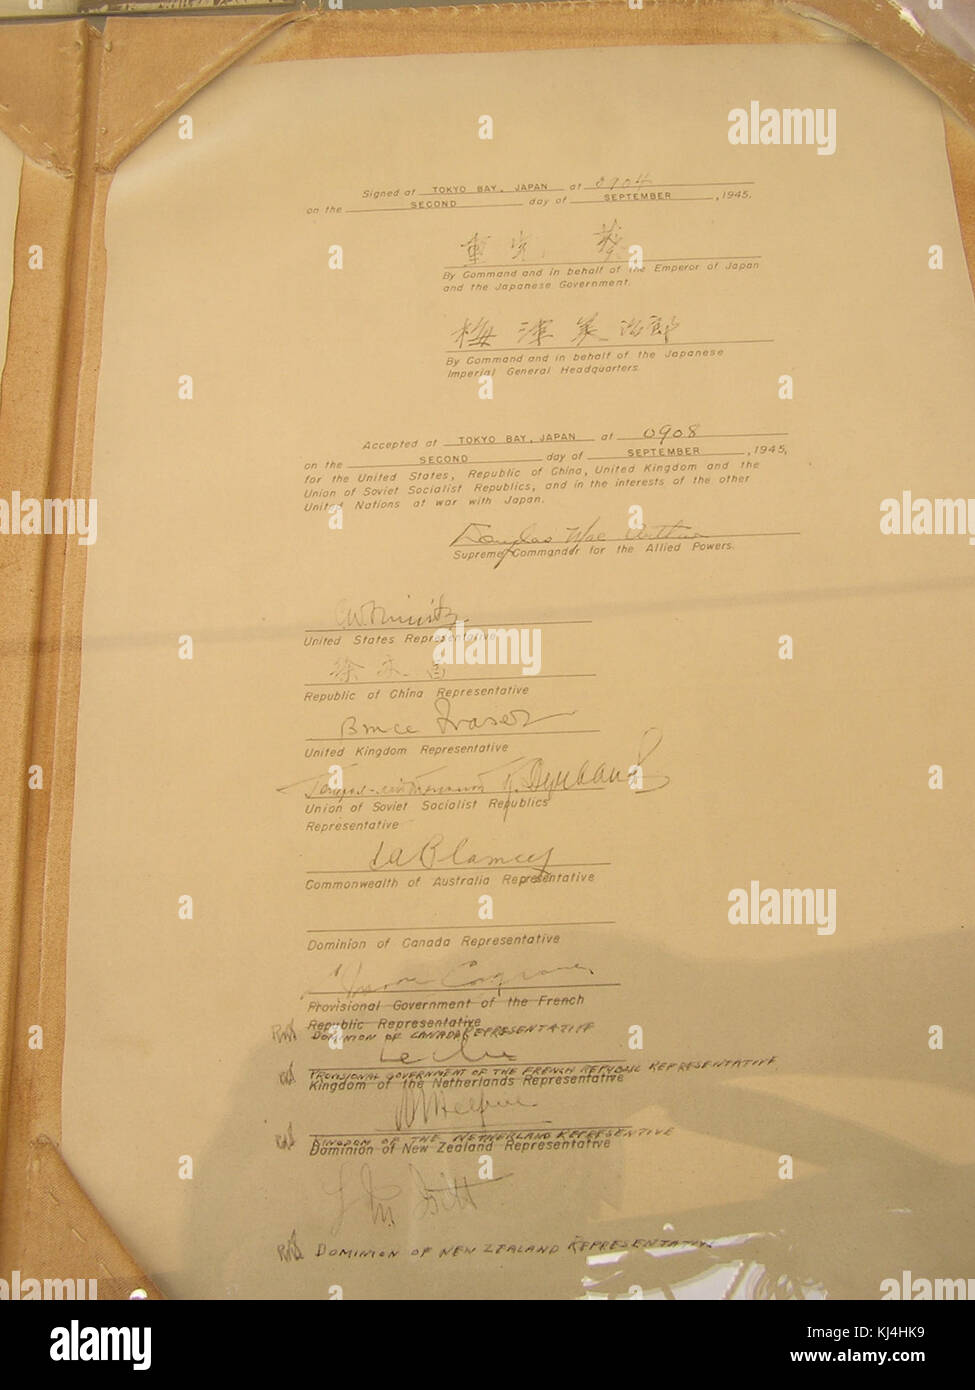 Signed at TOKYO BAY, JAPAN at 0904
on the SECOND day of SEPTEMBER , 1945.
重光 葵
By Command and in behalf of the Emperor of Japan
and the Japanese Government.
梅津美治郎
By Command and in behalf of the Japanese
Imperial General Headquarters.
Accepted at TOKYO BAY, JAPAN at 0908
on the SECOND day of SEPTEMBER , 1945,
for the United States, Republic of China, United Kingdom and the
Union of Soviet Socialist Republics, and in the interests of the other
United Nations at war with Japan.
Douglas MacArthur
Supreme Commander for the Allied Powers.
C.W. Nimitz
United States Representative
徐永昌
Republic of China Representative
Bruce Fraser
United Kingdom Representative
Union of Soviet Socialist Republics
Representative
T.A. Blamey
Commonwealth of Australia Representative
Dominion of Canada Representative
Moore Cosgrave
Provisional Government of the French
Republic Representative
DOMINION OF CANADA REPRESENTATIVE
Leclerc
PROVISIONAL GOVERNMENT OF THE FRENCH REPUBLIC REPRESENTATIVE
Kingdom of the Netherlands Representative
KINGDOM OF THE NETHERLAND REPRESENTIVE
Dominion of New Zealand Representative
DOMINION OF NEW ZEALAND REPRESENTATIVE
alamy
a
Image ID: KJ4HK9
www.alamy.com